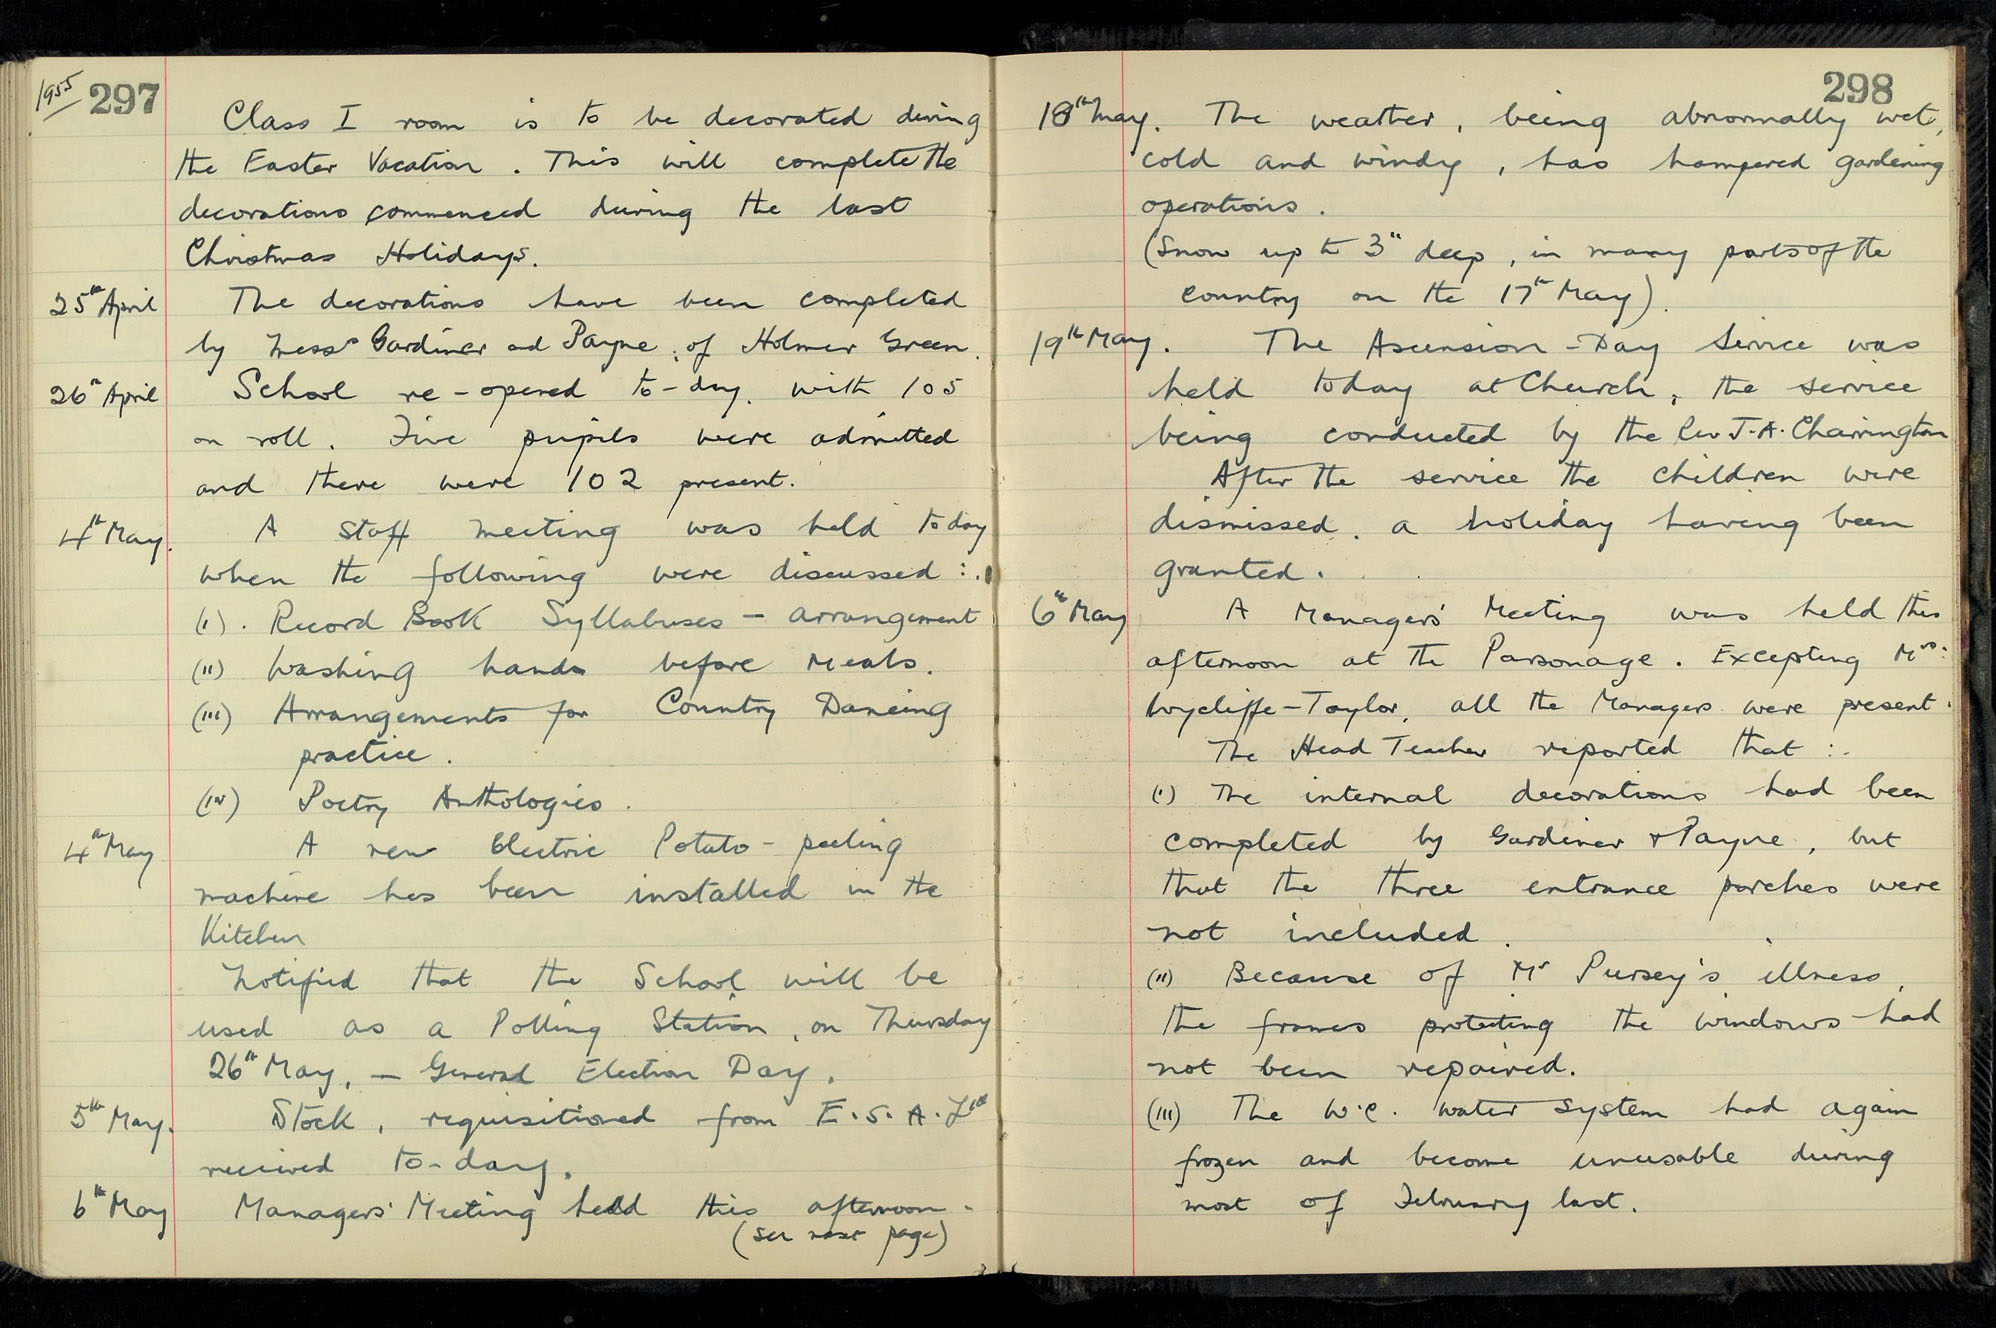 1955
297
Class I room is to be decorated during
the Easter Vacation. This will complete the
decorations commenced during the last
Christmas Holidays.
25th April The decorations have been completed
by Messrs Gardiner and Payne, of Holmer Green.
26th April School re-opened to-day, with 105
on roll. Five pupils were admitted
and there were 102 present.
4th May. A staff meeting was held today
when the following were discussed :.
(i). Record Book Syllabuses — arrangement
(ii) Washing hands before Meals.
(iii) Arrangements for Country Dancing
practice.
(iv) Poetry Anthologies.
4th May A new Electric Potato-peeling
machine has been installed in the
Kitchen
Notified that the School will be
used as a Polling Station, on Thursday
26th May, — General Election Day.
5th May. Stock, requisitioned from E.S.A. Ltd
received to-day.
6th May Managers' Meeting held this afternoon.
(see next page)
298
18th May. The weather, being abnormally wet,
cold and windy, has hampered gardening
operations.
(Snow up to 3" deep, in many parts of the
country on the 17th May).
19th May. The Ascension-Day Service was
held today at Church, the service
being conducted by the Rev J.A. Charrington
After the service the children were
dismissed, a holiday having been
granted.
6th May A Managers' Meeting was held this
afternoon at the Parsonage. Excepting Mrs:
Wycliffe-Taylor, all the Managers were present.
The Head Teacher reported that :.
(i) The internal decorations had been
completed by Gardiner & Payne, but
that the three entrance porches were
not included.
(ii) Because of Mr Pursey's illness,
the frames protecting the windows had
not been repaired.
(iii) The W.C. water system had again
frozen and become unusable during
most of February last.